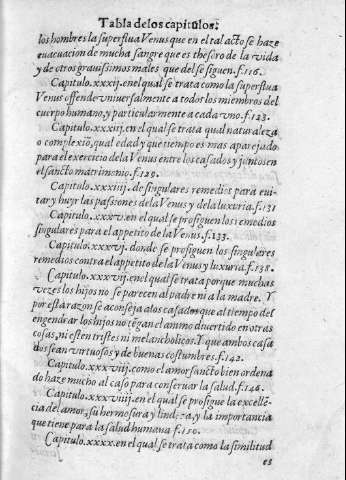 Tabla de los capitulos.
los hombres la superflua Venus que en el tal acto se haze
euacuacion de mucha sangre que es thesoro de la vida
y de otros grauissimos males que del se siguen. f.116.
Capitulo.xxxij. en el qual se trata como la superflua
Venus offende vniuersalmente a todos los miembros del
cuerpo humano, y particularmente a cada vno. f.123.
Capitulo.xxxiij. en el qual se trata qual naturaleza
o complexiõ, qual edad y que tiempo es mas aparejado
para el exercicio de la Venus entre los casados y juntos en
el sancto matrimonio. f.129.
Capitulo.xxxiiij. de singulares remedios para eui-
tar y huyr las passiones de la Venus y de la luxuria. f.131
Capitulo.xxxv. en el qual se prosiguen los remedios
singulares para el appetito de la Venus. f.133.
Capitulo.xxxvj. donde se prosiguen los singulares
remedios contra el appetito de la Venus y luxuria. f.138.
Capitulo.xxxvij. en el qual se trata porque muchas
vezes los hijos no se parecen al padre ni a la madre. Y
por esta razon se aconseja a los casados que al tiempo del
engendrar los hijos no tẽgan el animo diuertido en otras
cosas, ni esten tristes ni melancholicos. Y que ambos casa
dos sean virtuosos y de buenas costumbres. f.142.
Capitulo.xxxviij. como el amor sancto bien ordena
do haze mucho al caso para conseruar la salud. f.146.
Capitulo.xxxviiij. en el qual se prosigue la excellẽ-
cia del amor, su hermosura y lindeza, y la importancia
que tiene para la salud humana. f.150.
Capitulo.xxxx. en el qual se trata como la similitud
es